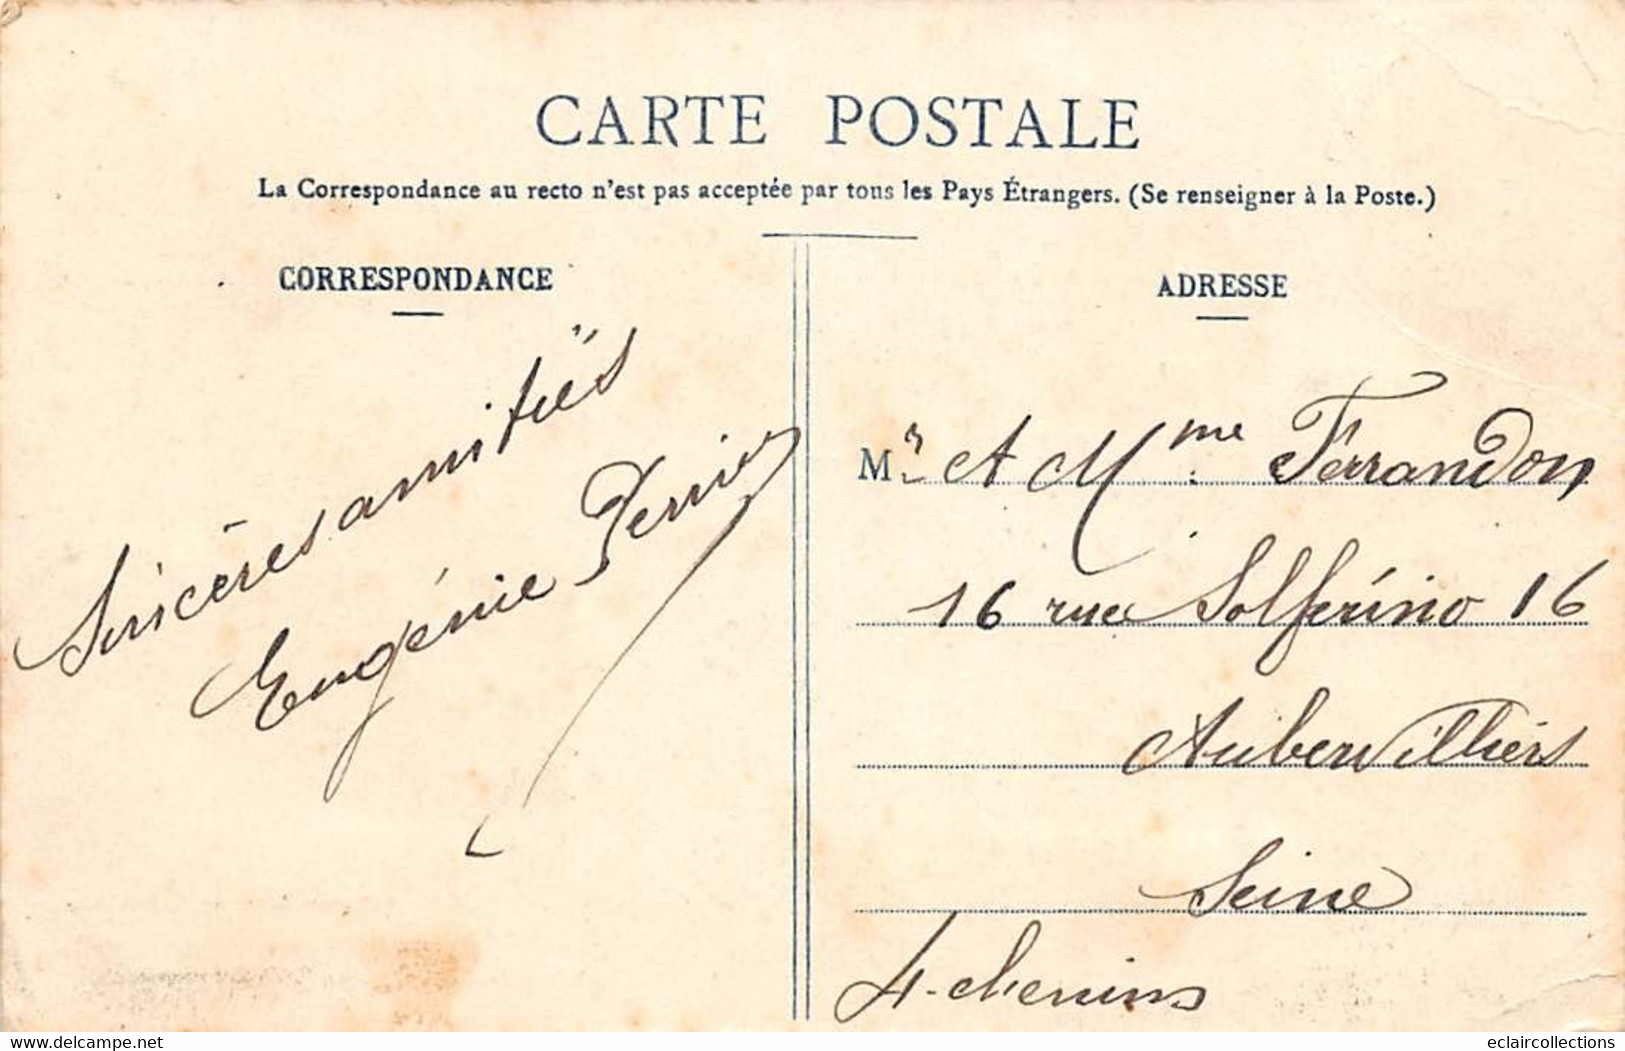 CARTE POSTALE
La Correspondance au recto n'est pas acceptée par tous les Pays Étrangers. (Se renseigner à la Poste.)
CORRESPONDANCE
Sincères amitiés
Eugénie Perrier
ADRESSE
Mr A Mme Ferrandon
16 rue Solférino 16
Aubervilliers
Seine
4-chemins
delcampe.net
eclaircollections